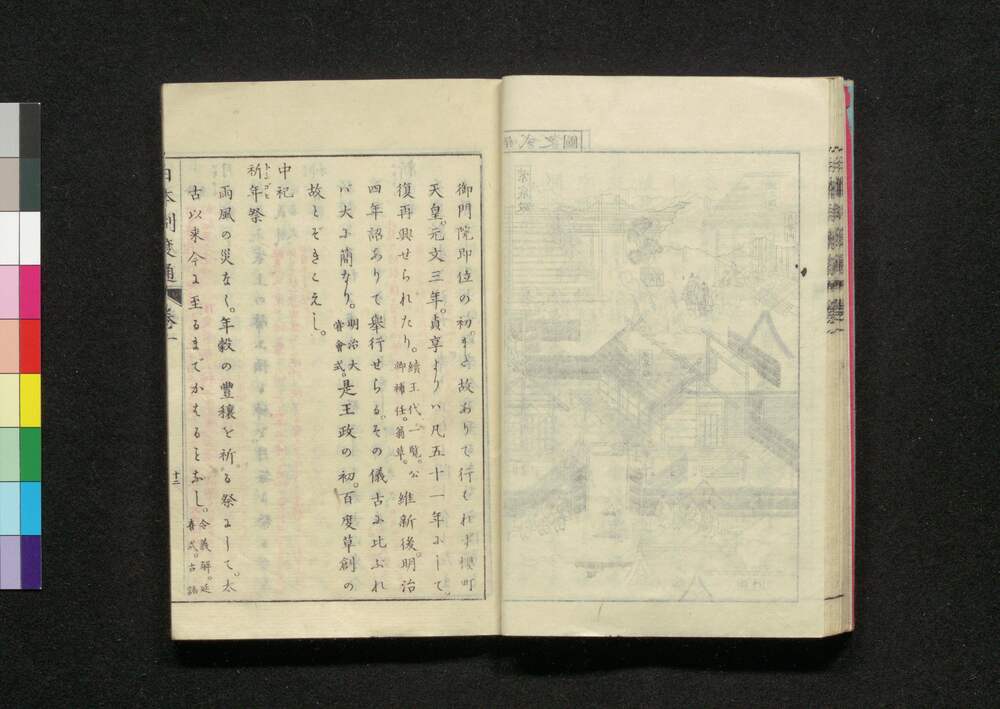 御門院即位の初。また故ありて行はれず櫻町
天皇。元文三年。貞享よりハ凡五十一年にして。
復再興せられたり。續王代一覧。公卿補任。翁草。維新後。明治
四年詔ありて舉行せらる。その儀古に比ぶれ
バ大に簡なり。明治大甞會式。是王政の初。百度草創の
故とぞきこえし。
中祀
祈年祭
としごひ
雨風の災なく。年穀の豐穰を祈る祭にして。太
古以來今に至るまでかはることなし。令義解。延喜式。古語
日本制度通
卷一
十二